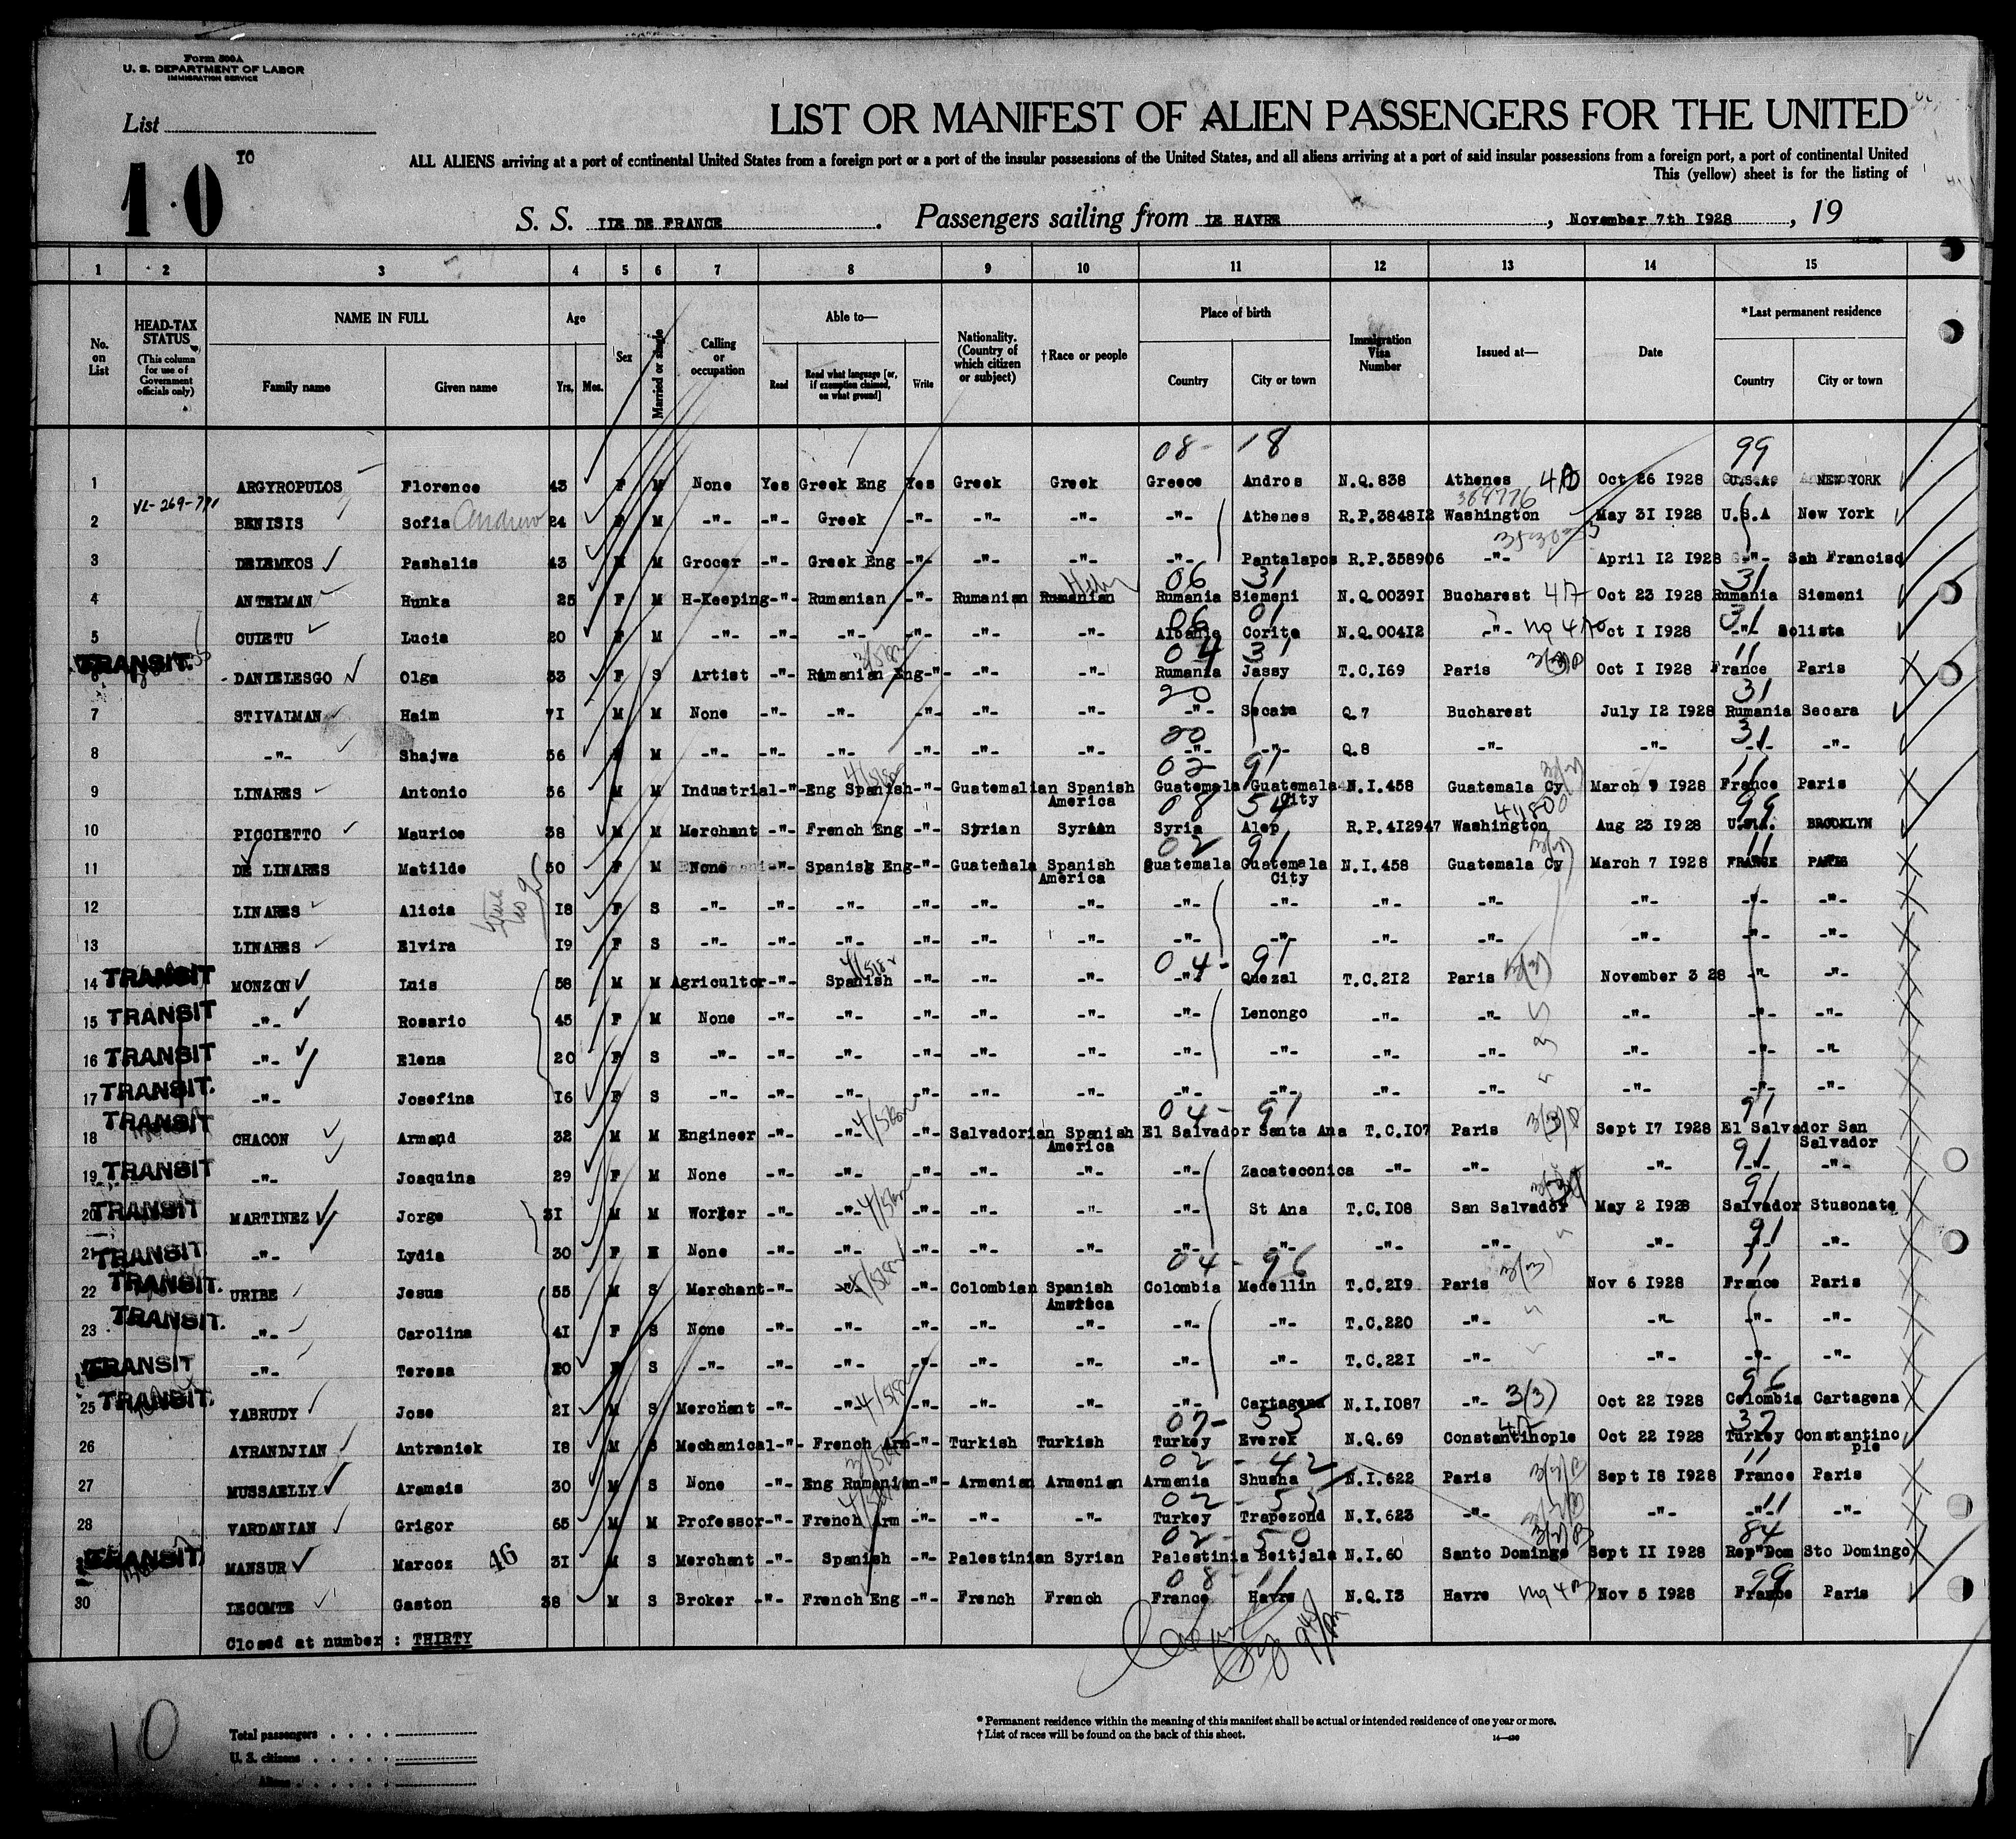 Form 500A
U. S. DEPARTMENT OF LABOR
IMMIGRATION SERVICE
List
10 TO
LIST OR MANIFEST OF ALIEN PASSENGERS FOR THE UNITED
ALL ALIENS arriving at a port of continental United States from a foreign port or a port of the insular possessions of the United States, and all aliens arriving at a port of said insular possessions from a foreign port, a port of continental United
This (yellow) sheet is for the listing of
S. S. ILE DE FRANCE . Passengers sailing from LE HAVRE , November 7th 1928 , 19
1 2 3 4 5 6 7 8 9 10 11 12 13 14 15
No. on List
HEAD-TAX STATUS (This column for use of Government officials only)
NAME IN FULL
Family name Given name
Age
Yrs. Mos.
Sex
Married or single
Calling or occupation
Able to—
Read Read what language [or, if exemption claimed, on what ground] Write
Nationality. (Country of which citizen or subject)
†Race or people
Place of birth
Country City or town
Immigration Visa Number
Issued at—
Date
*Last permanent residence
Country City or town
08- 18 99
1 ARGYROPULOS Florence 43 F M None Yes Greek Eng Yes Greek Greek Greece Andros N.Q.838 Athenes Oct 26 1928 U.S.A. NEW YORK
2 BENISIS Sofia Andrew 24 F M -"- -"- Greek -"- -"- -"- -"- Athenes R.P.384812 Washington May 31 1928 U.S.A New York
3 DELEMKOS Pashalis 43 M M Grocer -"- Greek Eng -"- -"- -"- -"- Pantalapos R.P.358906 -"- April 12 1928 -"- San Francisc
06 31 31
4 ANTELMAN Hunka 25 F M H-Keeping -"- Rumanian -"- Rumanian Rumanian Rumania Siemeni N.Q.00391 Bucharest Oct 23 1928 Rumania Siemeni
06 01 31
5 CUIETU Lucia 20 F M -"- -"- -"- -"- -"- -"- Albania Corita N.Q.00412 -"- Oct 1 1928 -"- Solista
TRANSIT. 04 31 11
DANIELESGO Olga 33 F S Artist -"- Rumanian Eng -"- -"- -"- Rumania Jassy T.C.169 Paris Oct 1 1928 France Paris
20 31
7 STIVALMAN Haim 71 M M None -"- -"- -"- -"- -"- -"- Secara Q.7 Bucharest July 12 1928 Rumania Secara
20 31
8 -"- Shajwa 56 F M -"- -"- -"- -"- -"- -"- -"- -"- Q.8 -"- -"- -"- -"-
02 91 11
9 LINARES Antonio 56 M M Industrial -"- Eng Spanish -"- Guatemalian Spanish America Guatemala Guatemala City N.I.458 Guatemala Cy March 9 1928 France Paris
08 54 99
10 PICCIETTO Maurice 38 M M Merchant -"- French Eng -"- Syrian Syrian Syria Alep R.P.412947 Washington Aug 23 1928 U.S.A. BROOKLYN
02 91 11
11 DE LINARES Matilde 50 F M None -"- Spanish Eng -"- Guatemala Spanish America Guatemala Guatemala City N.I.458 Guatemala Cy March 7 1928 FRANCE PARIS
12 LINARES Alicia 18 F S -"- -"- -"- -"- -"- -"- -"- -"- -"- -"- -"- -"- -"-
13 LINARES Elvira 19 F S -"- -"- -"- -"- -"- -"- -"- -"- -"- -"- -"- -"- -"-
04- 91
14 TRANSIT MONZON Luis 58 M M Agricultor -"- Spanish -"- -"- -"- -"- Quezal T.C.212 Paris November 3 28 -"- -"-
15 TRANSIT -"- Rosario 45 F M None -"- -"- -"- -"- -"- -"- Lenongo -"- -"- -"- -"- -"-
16 TRANSIT -"- Elena 20 F S -"- -"- -"- -"- -"- -"- -"- -"- -"- -"- -"- -"- -"-
17 TRANSIT. -"- Josefina 16 F S -"- -"- -"- -"- -"- -"- -"- -"- -"- -"- -"- -"- -"-
04- 91 91
18 TRANSIT CHACON Armand 32 M M Engineer -"- -"- -"- Salvadorian Spanish America El Salvador Santa Ana T.C.107 Paris Sept 17 1928 El Salvador San Salvador
19 TRANSIT -"- Joaquina 29 F M None -"- -"- -"- -"- -"- -"- Zacateconica -"- -"- -"- -"- -"-
20 TRANSIT MARTINEZ Jorge 31 M M Worker -"- -"- -"- -"- -"- -"- St Ana T.C.108 San Salvador May 2 1928 Salvador Stusonate
21 TRANSIT. -"- Lydia 30 F M None -"- -"- -"- -"- -"- -"- -"- -"- -"- -"- -"- -"-
04- 96 11
22 TRANSIT. URIBE Jesus 55 M S Merchant -"- -"- -"- Colombian Spanish America Colombia Medellin T.C.219 Paris Nov 6 1928 France Paris
23 TRANSIT. -"- Carolina 41 F S None -"- -"- -"- -"- -"- -"- -"- T.C.220 -"- -"- -"- -"-
TRANSIT -"- Teresa 20 F S -"- -"- -"- -"- -"- -"- -"- -"- T.C.221 -"- -"- -"- -"-
25 TRANSIT. YABRUDY Jose 21 M S Merchant -"- -"- -"- -"- -"- -"- Cartagena N.I.1087 -"- Oct 22 1928 Colombia Cartagena
07- 53 37
26 AYRANDJIAN Antraniek 18 M S Mechanical -"- French Arm -"- Turkish Turkish Turkey Everek N.Q.69 Constantinople Oct 22 1928 Turkey Constantinople
02- 42 11
27 MUSSAELLY Aramais 30 M S None -"- Eng Rumanian -"- Armenian Armenian Armenia Shusha N.I.622 Paris Sept 18 1928 France Paris
02- 53 11
28 VARDANIAN Grigor 65 M M Professor -"- French Arm -"- -"- -"- Turkey Trapezond N.I.623 -"- -"- -"- -"-
02- 50 84
TRANSIT. MANSUR Marcoz 46 31 M S Merchant -"- Spanish -"- Palestinian Syrian Palestinia Beitjala N.I.60 Santo Domingo Sept 11 1928 Rep"Dom Sto Domingo
08- 11 99
30 LECOMTE Gaston 38 M S Broker -"- French Eng -"- French French France Havre N.Q.13 Havre Nov 5 1928 France Paris
Closed at number : THIRTY
10
Total passengers
U. S. citizens
Aliens
* Permanent residence within the meaning of this manifest shall be actual or intended residence of one year or more.
† List of races will be found on the back of this sheet.